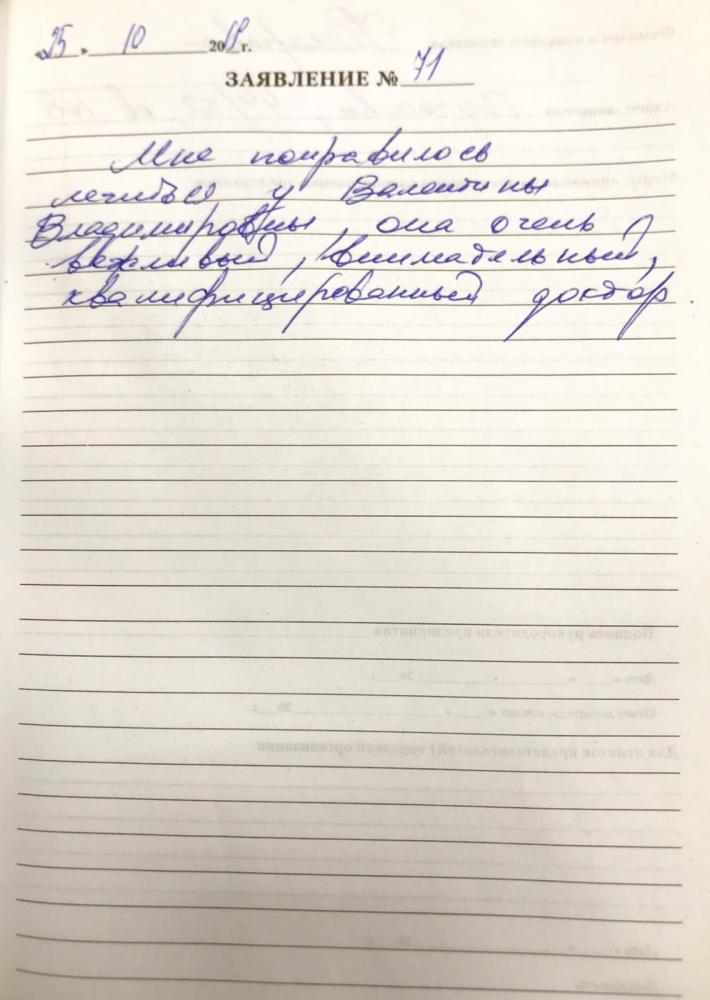 «25» 10 2018 г.
ЗАЯВЛЕНИЕ № 71
Мне понравилось
лечиться у Валентины
Владимировны, она очень
вежливый, внимательный,
квалифицированный доктор.